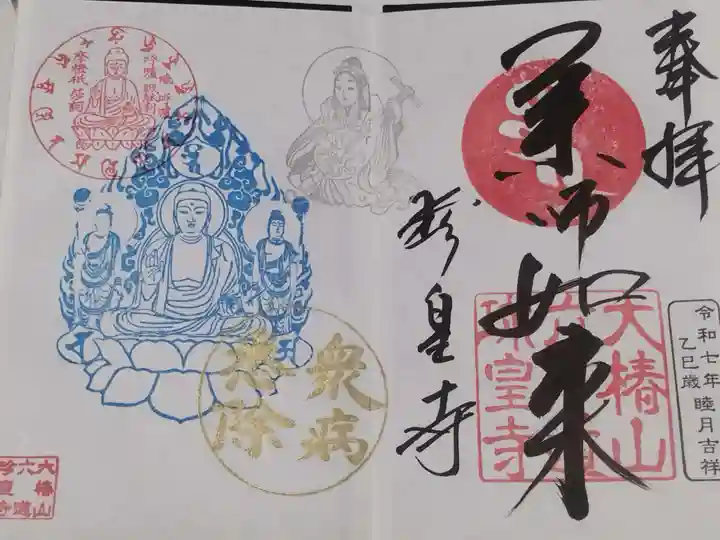 奉拝
薬師如来
珍皇寺
大椿山
六道
珍皇寺
令和七年睦月吉祥
乙巳歳
衆病
悉除
大椿山
六道
珍皇寺